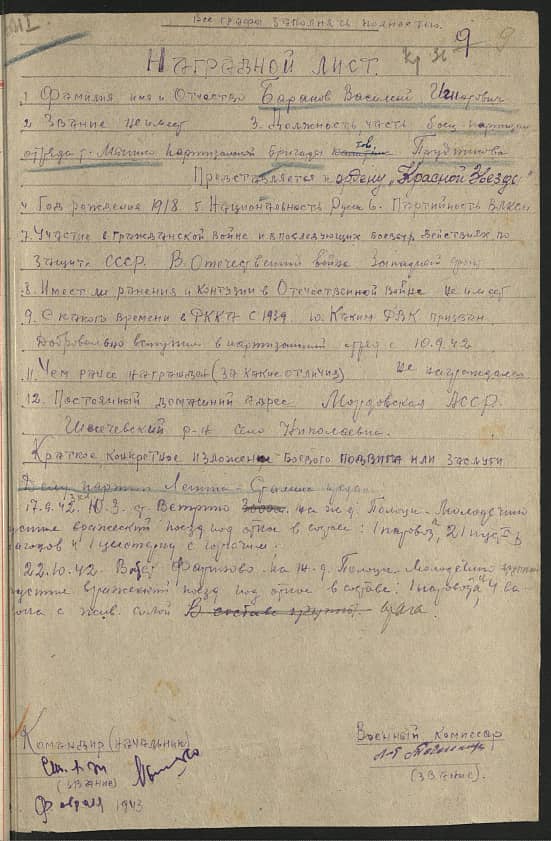 Все графы заполнять полностью.
9 9
Наградной лист.
1 Фамилия имя и Отчество Баранов Василий
2 Звание не имеет 3. Должность, часть боец партизан
отряда т. партизанской бригады тов.
Представляется к ордену „Красной Звезды"
4 Год рождения 1918. 5. Национальность Русск 6. Партийность ВЛКСМ
7. Участие в Гражданской войне и в последующих боевых действиях по
защите СССР. В Отечественной войне Западный фронт
8. Имеет ли ранения и контузии в Отечественной войне не имеет
9. С какого времени в РККА с 1939 10. Каким РВК призван
Добровольно вступил в партизанский отряд с 10.9.42
11. Чем ранее награжден (за какие отличия) не награждался
12. Постоянный домашний адрес Мордовская АССР.
р-н село Николаевка.
Краткое конкретное изложение боевого подвига или заслуги
Делу партии Ленина-Сталина предан.
17.9.42. Ю.З. д. Ветрино на ж.д. Полоцк-Молодечно
пустил вражеский поезд под откос в составе: 1 паровоз, 21
вагонов и 1 цистерну с горючим.
22.10.42. на ж-д. Полоцк-Молодечно
пустил вражеский поезд под откос в составе: 1 паровоза, 4 ва-
гона с жив. силой В составе группы врага.
Командир (начальник)
Военный комиссар
(звание)
(звание).
Февраля 1943